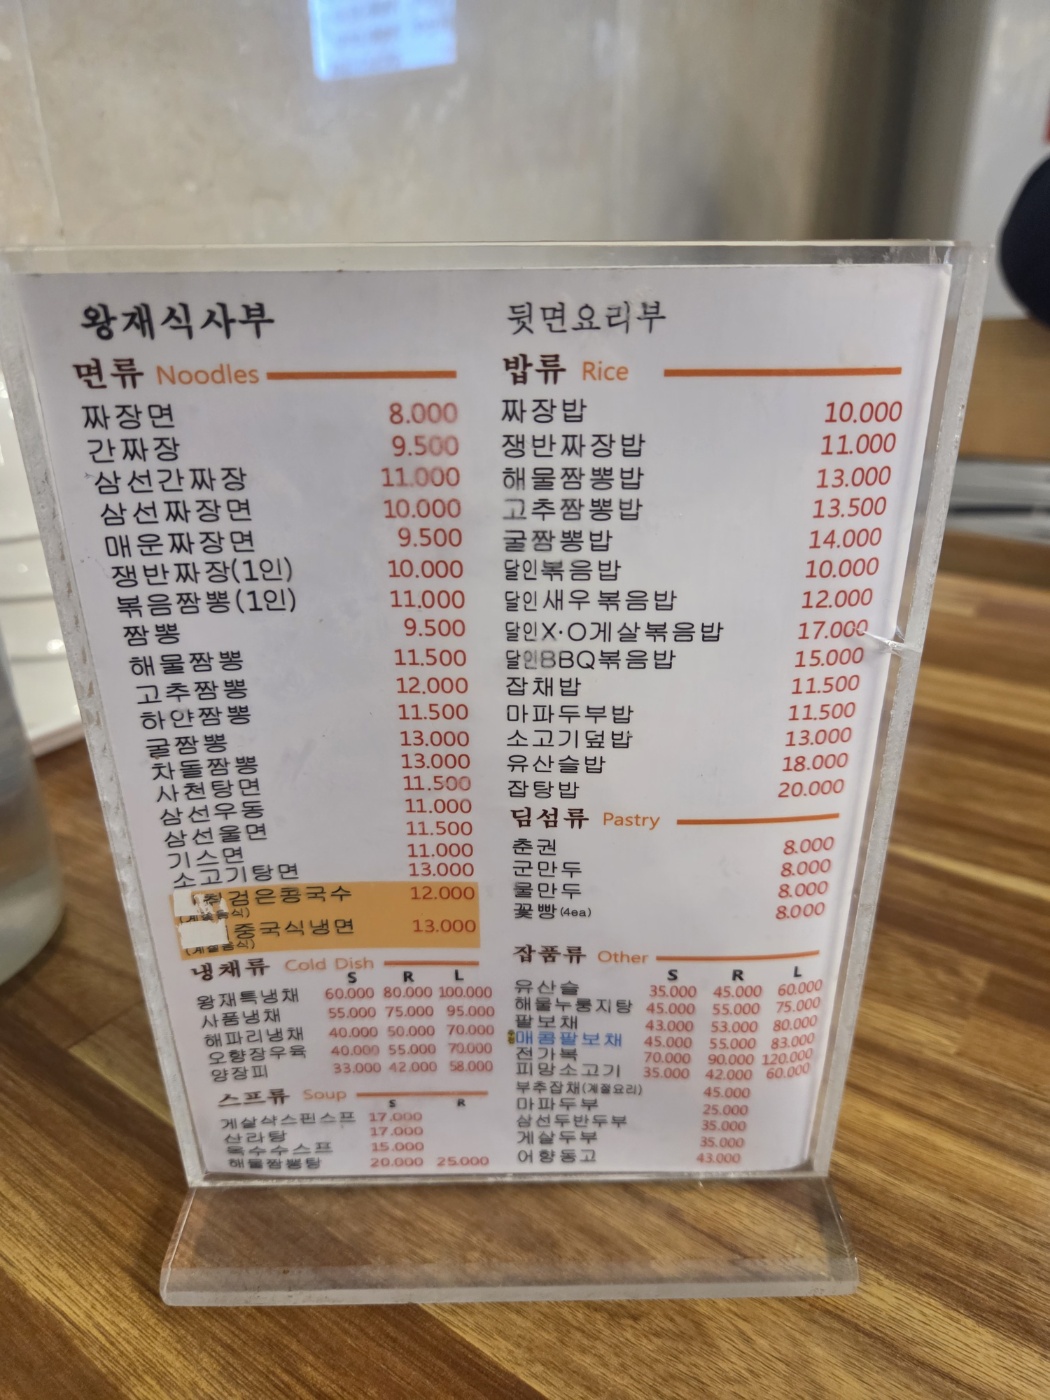 왕재식사부
면류 Noodles
짜장면 8.000
간짜장 9.500
삼선간짜장 11.000
삼선짜장면 10.000
매운짜장면 9.500
쟁반짜장(1인) 10.000
볶음짬뽕(1인) 11.000
짬뽕 9.500
해물짬뽕 11.500
고추짬뽕 12.000
하얀짬뽕 11.500
굴짬뽕 13.000
차돌짬뽕 13.000
사천탕면 11.500
삼선우동 11.000
삼선울면 11.500
기스면 11.000
소고기탕면 13.000
검은콩국수 12.000
(계절음식)
중국식냉면 13.000
(계절음식)
냉채류 Cold Dish
S R L
왕재특냉채 60.000 80.000 100.000
사품냉채 55.000 75.000 95.000
해파리냉채 40.000 50.000 70.000
오향장우육 40.000 55.000 70.000
양장피 33.000 42.000 58.000
스프류 Soup
S R
게살삭스핀스프 17.000
산라탕 17.000
옥수수스프 15.000
해물짬뽕탕 20.000 25.000
뒷면요리부
밥류 Rice
짜장밥 10.000
쟁반짜장밥 11.000
해물짬뽕밥 13.000
고추짬뽕밥 13.500
굴짬뽕밥 14.000
달인볶음밥 10.000
달인새우볶음밥 12.000
달인X·O게살볶음밥 17.000
달인BBQ볶음밥 15.000
잡채밥 11.500
마파두부밥 11.500
소고기덮밥 13.000
유산슬밥 18.000
잡탕밥 20.000
딤섬류 Pastry
춘권 8.000
군만두 8.000
물만두 8.000
꽃빵(4ea) 8.000
잡품류 Other
S R L
유산슬 35.000 45.000 60.000
해물누룽지탕 45.000 55.000 75.000
팔보채 43.000 53.000 80.000
매콤팔보채 45.000 55.000 83.000
전가복 70.000 90.000 120.000
피망소고기 35.000 42.000 60.000
부추잡채(계절요리) 45.000
마파두부 25.000
삼선두반두부 35.000
게살두부 35.000
어향동고 43.000